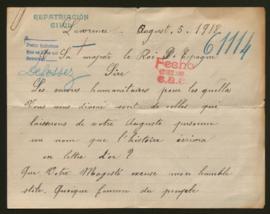 REPATRIACIÓN
CIVIL
Lawrence, August, 5, 1918
61114
Sa majesté le Roi D'Espagne
Fecha
Desossez
Sire
Les œuvres humanitaires pour les quelles
Vous vous sont de celles qui
laisserons de votre Auguste personne
un nom que l'histoire écrira
en lettre d'or !
Que Votre Magesté excuse mon humble
stile. Quoique femme du peuple